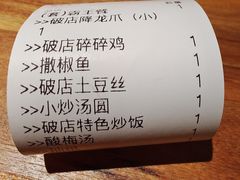 >>破店降龙爪（小）
1
>>破店碎碎鸡 1
>>撒椒鱼 1
>>破店土豆丝 1
>>小炒汤圆 1
>>破店特色炒饭 1
>>酸梅汤 1